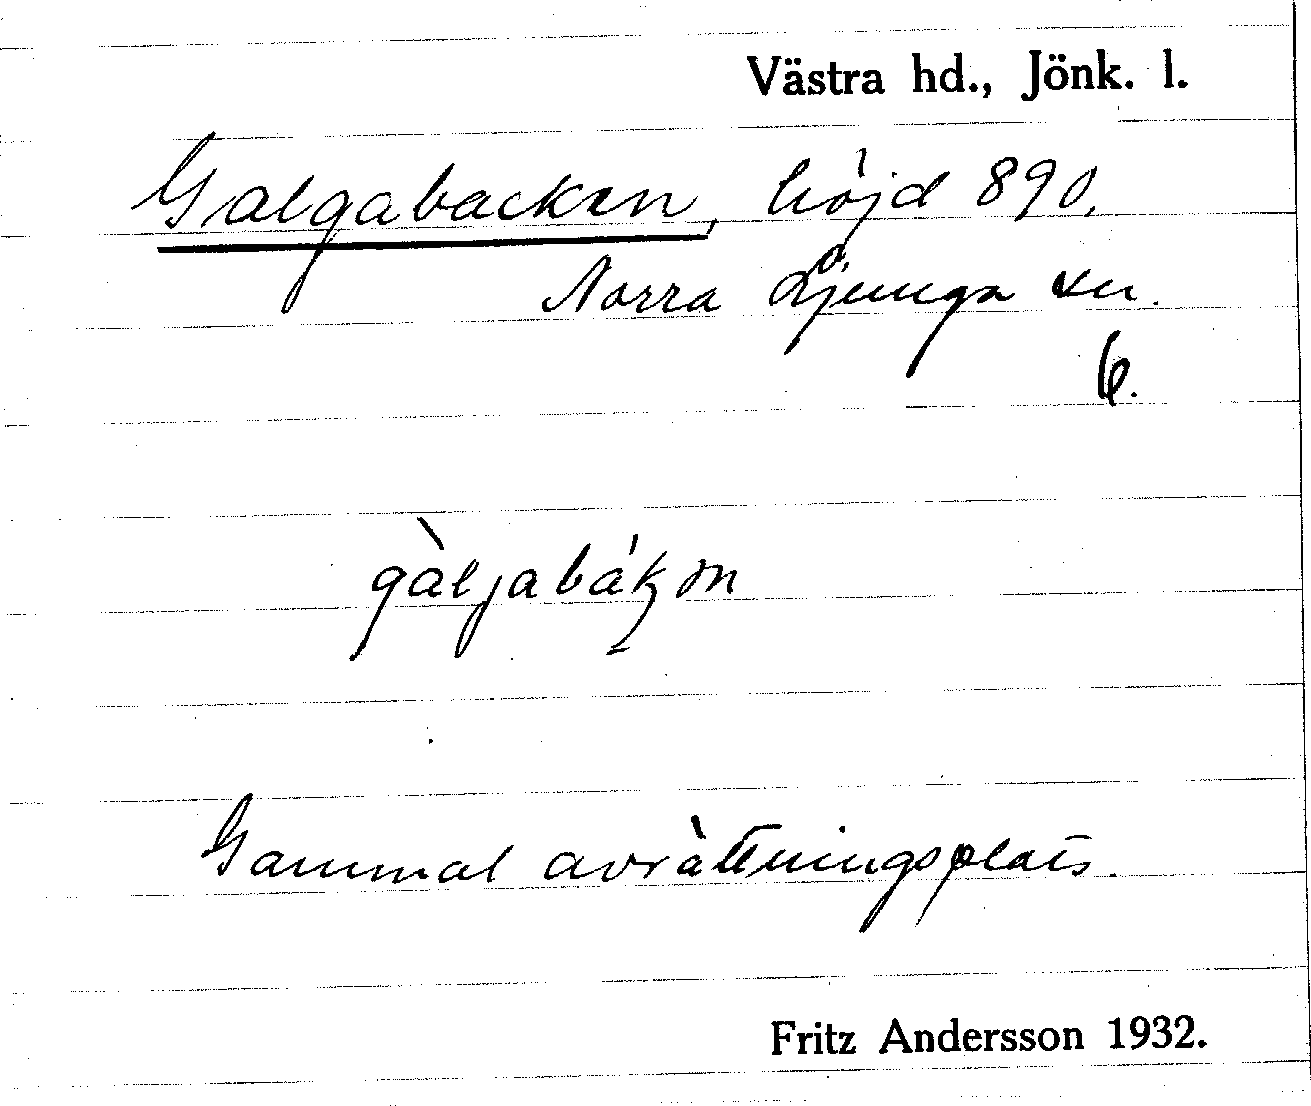 Västra hd., Jönk. l.
Galgabacken, höjd 890.
Norra Ljunga sn.
6.
gàljabákən
Gammal avrättningsplats.
Fritz Andersson 1932.